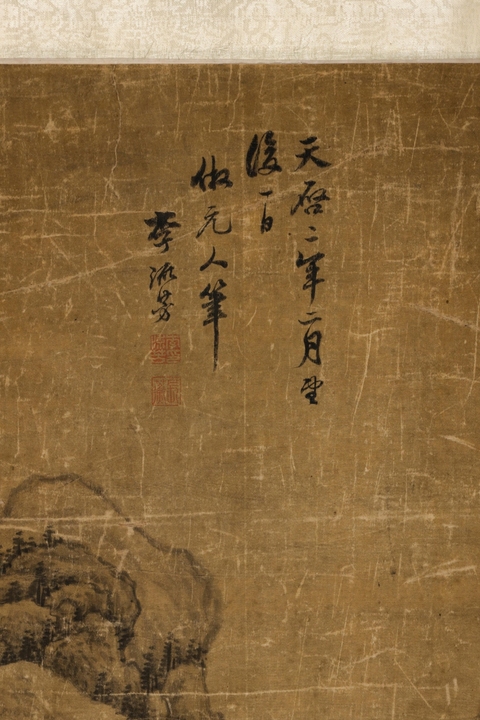 天啓二年二月望
後一日
倣元人筆
李流芳